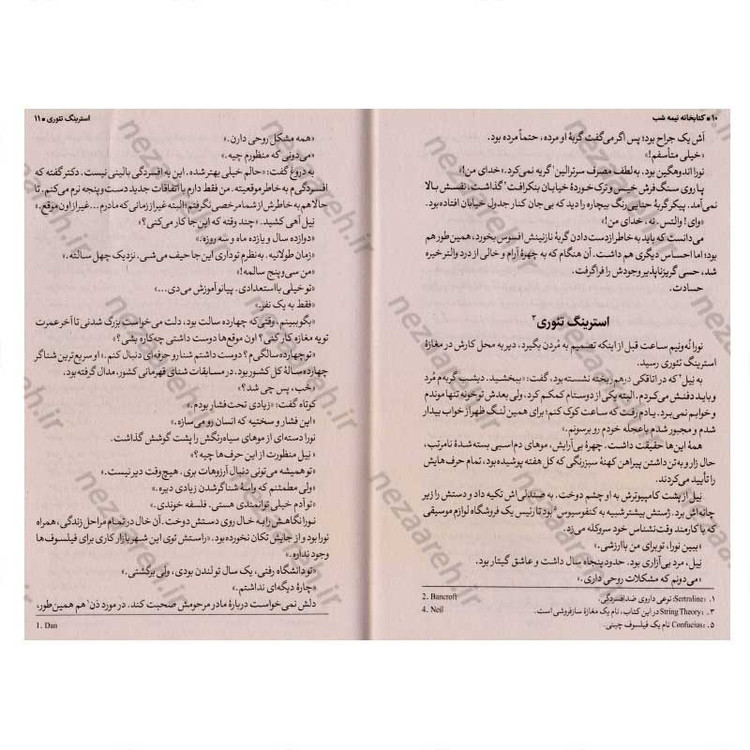 ۱۰ • کتابخانه نیمه شب
اَش یک جراح بود؛ پس اگر می‌گفت گربهٔ او مرده، حتماً مرده بود.
«خیلی متأسفم!»
نورا اندوهگین بود. به‌لطف مصرف سرترالین۱ گریه نمی‌کرد. «خدای من!»
پا روی سنگ‌فرش خیس و ترک خوردهٔ خیابان بنکرافت۲ گذاشت. نفسش بالا
نمی‌آمد. پیکر گربهٔ حنایی‌رنگ بیچاره را دید که بی‌جان کنار جدول خیابان افتاده بود.
«وای! والتس. نه، خدای من!»
می‌دانست که باید به خاطر از دست دادن گربهٔ نازنینش افسوس بخورد، همین‌طور هم
بود؛ اما احساس دیگری هم داشت. آن هنگام که به چهرهٔ آرام و خالی از درد والتر خیره
شد، حسی گریزناپذیر وجودش را فراگرفت.
حسادت.
استرینگ تئوری۳
نورا نُه‌ونیم ساعت قبل از اینکه تصمیم به مُردن بگیرد، دیر به محل کارش در مغازهٔ
استرینگ تئوری رسید.
به نیل۴ که در اتاقکی درهم ریخته نشسته بود، گفت: «ببخشید. دیشب گربه‌م مُرد
و باید دفنش می‌کردم. البته یکی از دوستام کمکم کرد، ولی بعدش تو خونه تنها موندم
و خوابم نمی‌برد. یادم رفت که ساعت کوک کنم؛ برای همین لنگ ظهر از خواب بیدار
شدم و مجبور شدم با عجله خودم رو برسونم.»
همهٔ این‌ها حقیقت داشت. چهرهٔ بی‌آرایش، موهای دم‌اسبی بسته‌شدهٔ نامرتب،
حال زار و به‌تن داشتن پیراهن کهنهٔ سبزرنگی که کل هفته پوشیده بود، تمام حرف‌هایش
را تأیید می‌کردند.
نیل از پشت کامپیوترش به او چشم دوخت. به صندلی‌اش تکیه داد و دستش را زیر
چانه‌اش برد. ژستش بیشتر شبیه به کنفوسیوس۵ بود تا رئیس یک فروشگاه لوازم موسیقی
که با کارمند وقت‌نشناس خود سروکله می‌زد.
«ببین نورا، تو برای من باارزشی.»
نیل، مرد بی‌آزاری بود. حدود پنجاه سال داشت و عاشق گیتار بود.
«می‌دونم که مشکلات روحی داری.»
۱. Sertraline: نوعی داروی ضدافسردگی.
2. Bancroft
۳. String Theory: در این کتاب، نام یک مغازهٔ سازفروشی است.
4. Neil
۵. Confucius: نام یک فیلسوف چینی.
استرینگ تئوری • ۱۱
«همه مشکل روحی دارن.»
«می‌دونی که منظورم چیه.»
به دروغ گفت: «حالم خیلی بهتر شده. این یه افسردگی بالینی نیست. دکتر گفته که
افسردگی‌م به خاطر موقعیته. من فقط دارم با اتفاقات جدید دست وپنجه نرم می‌کنم. تا
حالا هم به خاطرش از شما مرخصی نگرفتم؛ البته غیر از زمانی که مادرم... غیر از اون موقع.»
نیل آهی کشید. «چند وقته که این‌جا کار می‌کنی؟»
«دوازده سال و یازده ماه و سه روزه.»
«زمان طولانیه. به‌نظرم تو داری این‌جا حیف می‌شی. نزدیک چهل سالته.»
«من سی‌وپنج سالمه!»
«تو خیلی بااستعدادی. پیانو آموزش می‌دی...»
«فقط به یک نفر.»
«بگو ببینم، وقتی‌که چهارده سالت بود، دلت می‌خواست بزرگ شدنی تا آخر عمرت
تو یه مغازه کار کنی؟ اون موقع‌ها دوست داشتی چه‌کاره بشی؟»
«تو چهارده سالگی‌م؟ دوست داشتم شنا رو حرفه‌ای دنبال کنم.» او سریع‌ترین شناگر
چهارده سالهٔ کل کشور بود. در مسابقات شنای قهرمانی کشور، مدال گرفته بود.
«خُب، پس چی شد؟»
کوتاه گفت: «زیادی تحت‌فشار بودم.»
«این فشار و سختیه که انسان رو می‌سازه.»
نورا دسته‌ای از موهای سیاه‌رنگش را پشت گوشش گذاشت.
«نیل منظورت از این حرف‌ها چیه؟»
«تو همیشه می‌تونی دنبال آرزوهات بری. هیچ‌وقت دیر نیست.»
«ولی مطمئنم که واسهٔ شناگر شدن زیادی دیره.»
«تو آدم خیلی توانمندی هستی. فلسفه خوندی.»
نورا نگاهش را به خال روی دستش دوخت. آن خال در تمام مراحل زندگی، همراه
نورا بود و از جایش تکان نخورده بود. «راستش توی این شهر بازار کاری برای فیلسوف‌ها
وجود نداره.»
«تو دانشگاه رفتی، یک سال تو لندن بودی، ولی برگشتی.»
«چارهٔ دیگه‌ای نداشتم.»
دلش نمی‌خواست دربارهٔ مادر مرحومش صحبت کند. در مورد دَن۱ هم همین‌طور،
1. Dan
nezaareh.ir